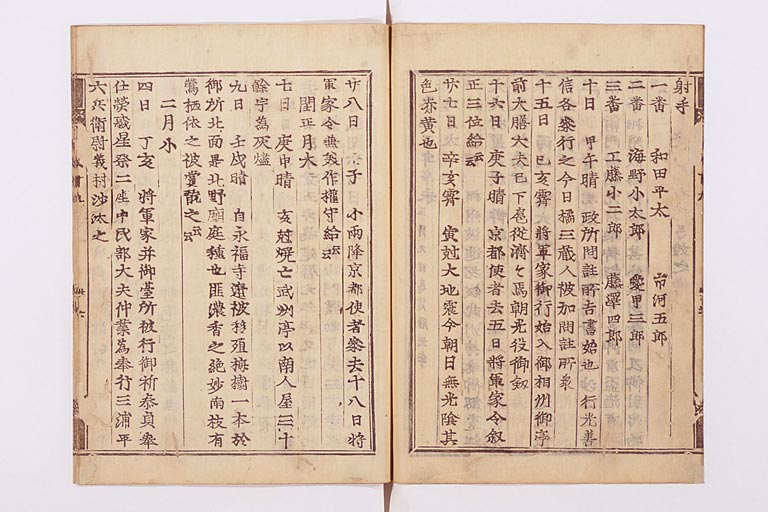 射手
一番　和田平太　　市河五郎
二番　海野小太郎　愛甲三郎
三番　工藤小二郎　藤澤四郎
十日　甲午晴　政所問註所吉書始也　行光善
信各參行之今日橘三蔵人被加問註所衆
十五日　己亥霽　大将軍家御行始入御相州御亭
前大膳大夫已下扈從濟々焉朝光役御釼
十六日　庚子晴　京都使者去五日將軍家令叙
正三位給云云
廿七日　辛亥霽　寅尅大地震今朝日無光陰其
色赤黄也
廿八日　壬子　小雨降京都使者參去十八日將
軍家令兼美作權守給云云
閏正月大
七日　庚申晴　亥尅焼亡武州亭以南人屋三十
餘宇為灰燼
九日　壬戌晴　自永福寺邊被移殖梅樹一本於
御所北面是北野廟庭種也匪濃香之絶妙南枝有
鶯栖依之被賞翫之云云
二月小
四日　丁亥　將軍家并御臺所被行御祈泰貞奉
仕熒惑星祭二座中民部大夫仲業為奉行三浦平
六兵衛尉義村沙汰之